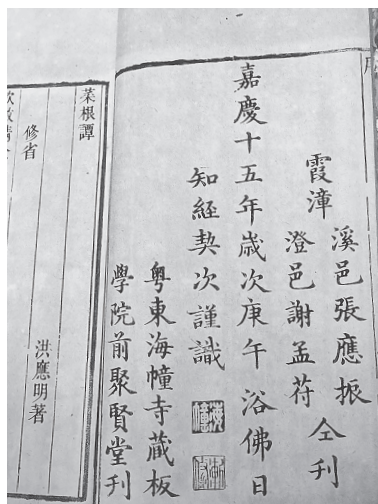 霞漳
溪邑張應振
澄邑謝孟苻
仝刋
嘉慶十五年歲次庚午浴佛日
知經契次謹識
粵東海幢寺藏板
學院前聚賢堂刋
菜根譚
修省
洪應明著